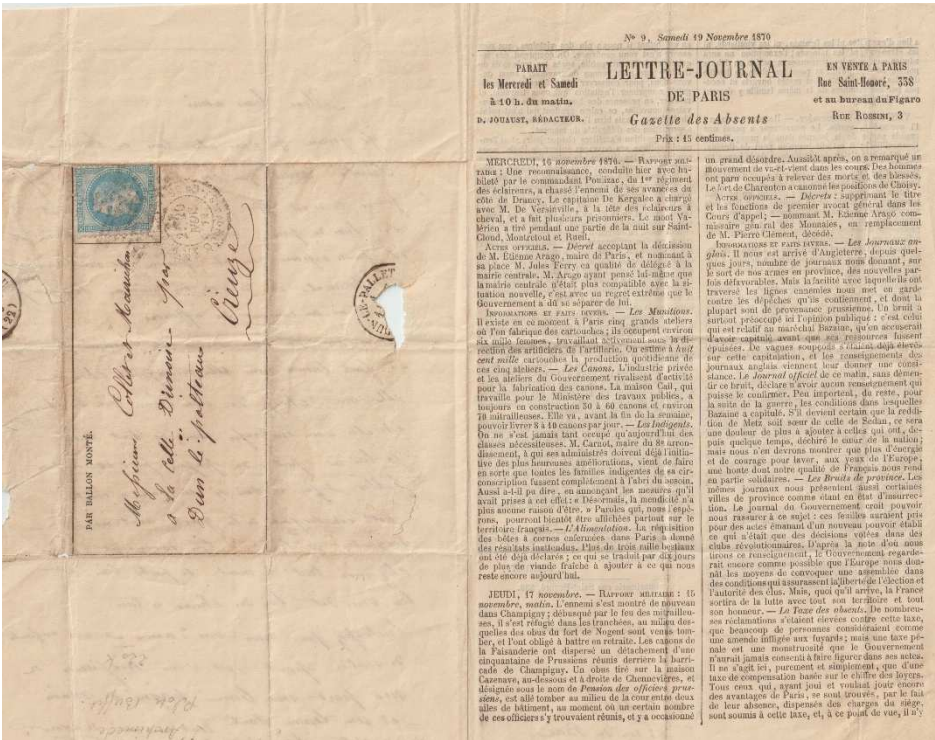 Nº 9, Samedi 19 Novembre 1870
PARAIT
les Mercredi et Samedi
à 10 h. du matin.
D. JOUAUST, RÉDACTEUR.
LETTRE-JOURNAL
DE PARIS
Gazette des Absents
Prix : 15 centimes.
EN VENTE A PARIS
Rue Saint-Honoré, 338
et au bureau du Figaro
RUE ROSSINI, 3
MERCREDI, 16 novembre 1870. — RAPPORT MILI-
TAIRE : Une reconnaissance, conduite hier avec ha-
bileté par le commandant Poulizac, du 1er régiment
des éclaireurs, a chassé l'ennemi de ses avancées du
côté de Drancy. Le capitaine De Kergalec a chargé
avec M. De Versinville, à la tête des éclaireurs à
cheval, et a fait plusieurs prisonniers. Le mont Va-
lérien a tiré pendant une partie de la nuit sur Saint-
Cloud, Montretout et Rueil.
ACTES OFFICIELS. — Décret acceptant la démission
de M. Etienne Arago, maire de Paris, et nommant à
sa place M. Jules Ferry en qualité de délégué à la
mairie centrale. M. Arago ayant pensé lui-même que
la mairie centrale n'était plus compatible avec la si-
tuation nouvelle, c'est avec un regret extrême que le
Gouvernement a dû se séparer de lui.
INFORMATIONS ET FAITS DIVERS. — Les Munitions.
Il existe en ce moment à Paris cinq grands ateliers
où l'on fabrique des cartouches ; ils occupent environ
six mille femmes, travaillant activement sous la di-
rection des artificiers de l'artillerie. On estime à huit
cent mille cartouches la production quotidienne de
ces cinq ateliers. — Les Canons. L'industrie privée
et les ateliers du Gouvernement rivalisent d'activité
pour la fabrication des canons. La maison Cail, qui
travaille pour le Ministère des travaux publics, a
toujours en construction 50 à 60 canons et environ
70 mitrailleuses. Elle va, avant la fin de la semaine,
pouvoir livrer 8 à 10 canons par jour. — Les Indigents.
On ne s'est jamais tant occupé qu'aujourd'hui des
classes nécessiteuses. M. Carnot, maire du 8e arron-
dissement, à qui ses administrés doivent déjà l'initia-
tive des plus heureuses améliorations, vient de faire
en sorte que toutes les familles indigentes de sa cir-
conscription fussent complétement à l'abri du besoin.
Aussi a-t-il pu dire, en annonçant les mesures qu'il
avait prises à cet effet : « Désormais, la mendicité n'a
plus aucune raison d'être. » Paroles qui, nous l'espé-
rons, pourront bientôt être affichées partout sur le
territoire français. — L'Alimentation. La réquisition
des bêtes à cornes cafermées dans Paris a donné
des résultats inattendus. Plus de trois mille bestiaux
ont été déjà déclarés ; ce qui se traduit par dix jours
de plus de viande fraîche à ajouter à ce qui nous
reste encore aujourd'hui.
JEUDI, 17 novembre. — RAPPORT MILITAIRE : 15
novembre, matin. L'ennemi s'est montré de nouveau
dans Champigny ; débusqué par le feu des mitrailleu-
ses, il s'est réfugié dans les tranchées, au milieu des-
quelles des obus du fort de Nogent sont venus tom-
ber, et l'ont obligé à battre en retraite. Les canons de
la Faisanderie ont dispersé un détachement d'une
cinquantaine de Prussiens réunis derrière la barri-
cade de Champigny. Un obus tiré sur la maison
Cazenave, au-dessous et à droite de Chennevières, et
désignée sous le nom de Pension des officiers prus-
siens, est allé tomber au milieu de la cour entre deux
ailes de bâtiment, au moment où un certain nombre
de ces officiers s'y trouvaient réunis, et y a occasionné
un grand désordre. Aussitôt après, on a remarqué un
mouvement de va-et-vient dans les cours. Des hommes
ont paru occupés à relever des morts et des blessés.
Le fort de Charenton a canonné les positions de Choisy.
ACTES OFFICIELS. — Décrets : supprimant le titre
et les fonctions de premier avocat général dans les
Cours d'appel ; — nommant M. Etienne Arago com-
missaire général des Monnaies, en remplacement
de M. Pierre Clément, décédé.
INFORMATIONS ET FAITS DIVERS. — Les Journaux an-
glais. Il nous est arrivé d'Angleterre, depuis quel-
ques jours, nombre de journaux nous donnant, sur
le sort de nos armes en province, des nouvelles par-
fois défavorables. Mais la facilité avec laquelle ils ont
traversé les lignes ennemies nous met en garde
contre les dépêches qu'ils contiennent, et dont la
plupart sont de provenance prussienne. Un bruit a
surtout préoccupé ici l'opinion publique : c'est celui
qui est relatif au maréchal Bazaine, qu'on accuserait
d'avoir capitulé avant que ses ressources fussent
épuisées. De vagues soupçons s'étaient déjà élevés
sur cette capitulation, et les renseignements des
journaux anglais viennent leur donner une consi-
stance. Le Journal officiel de ce matin, sans démen-
tir ce bruit, déclare n'avoir aucun renseignement qui
puisse le confirmer. Peu importent, du reste, pour
la suite de la guerre, les conditions dans lesquelles
Bazaine a capitulé. S'il devient certain que la reddi-
tion de Metz soit sœur de celle de Sedan, ce sera
une douleur de plus à ajouter à celles qui ont, de-
puis quelque temps, déchiré le cœur de la nation ;
mais nous n'en devrons montrer que plus d'énergie
et de courage pour laver, aux yeux de l'Europe,
une honte dont notre qualité de Français nous rend
en partie solidaires. — Les Bruits de province. Les
mêmes journaux nous présentent aussi certaines
villes de province comme étant en état d'insurrec-
tion. Le journal du Gouvernement croit pouvoir
nous rassurer à ce sujet : ces feuilles auraient pris
pour des actes émanant d'un nouveau pouvoir établi
ce qui n'était que des décisions votées dans des
clubs révolutionnaires. D'après la note d'où nous
tirons ce renseignement, le Gouvernement regarde-
rait encore comme possible que l'Europe nous don-
nât les moyens de convoquer une assemblée dans
des conditions qui assurassent la liberté de l'élection et
l'autorité des élus. Mais, quoi qu'il arrive, la France
sortira de la lutte avec tout son territoire et tout
son honneur. — La Taxe des absents. De nombreu-
ses réclamations s'étaient élevées contre cette taxe,
que beaucoup de personnes considéraient comme
une amende infligée aux fuyards ; mais une taxe pé-
nale est une monstruosité que le Gouvernement
n'aurait jamais consenti à faire figurer dans ses actes.
Il ne s'agit ici, purement et simplement, que d'une
taxe de compensation basée sur le chiffre des loyers.
Tous ceux qui, ayant joui et voulant jouir encore
des avantages de Paris, se sont trouvés, par le fait
de leur absence, dispensés des charges du siége,
sont soumis à cette taxe, et, à ce point de vue, il n'y
PAR BALLON MONTÉ.
Messieurs Collet et
a la Celle Dunoise par
Dun le palleteau
Creuze
LE-PALLET